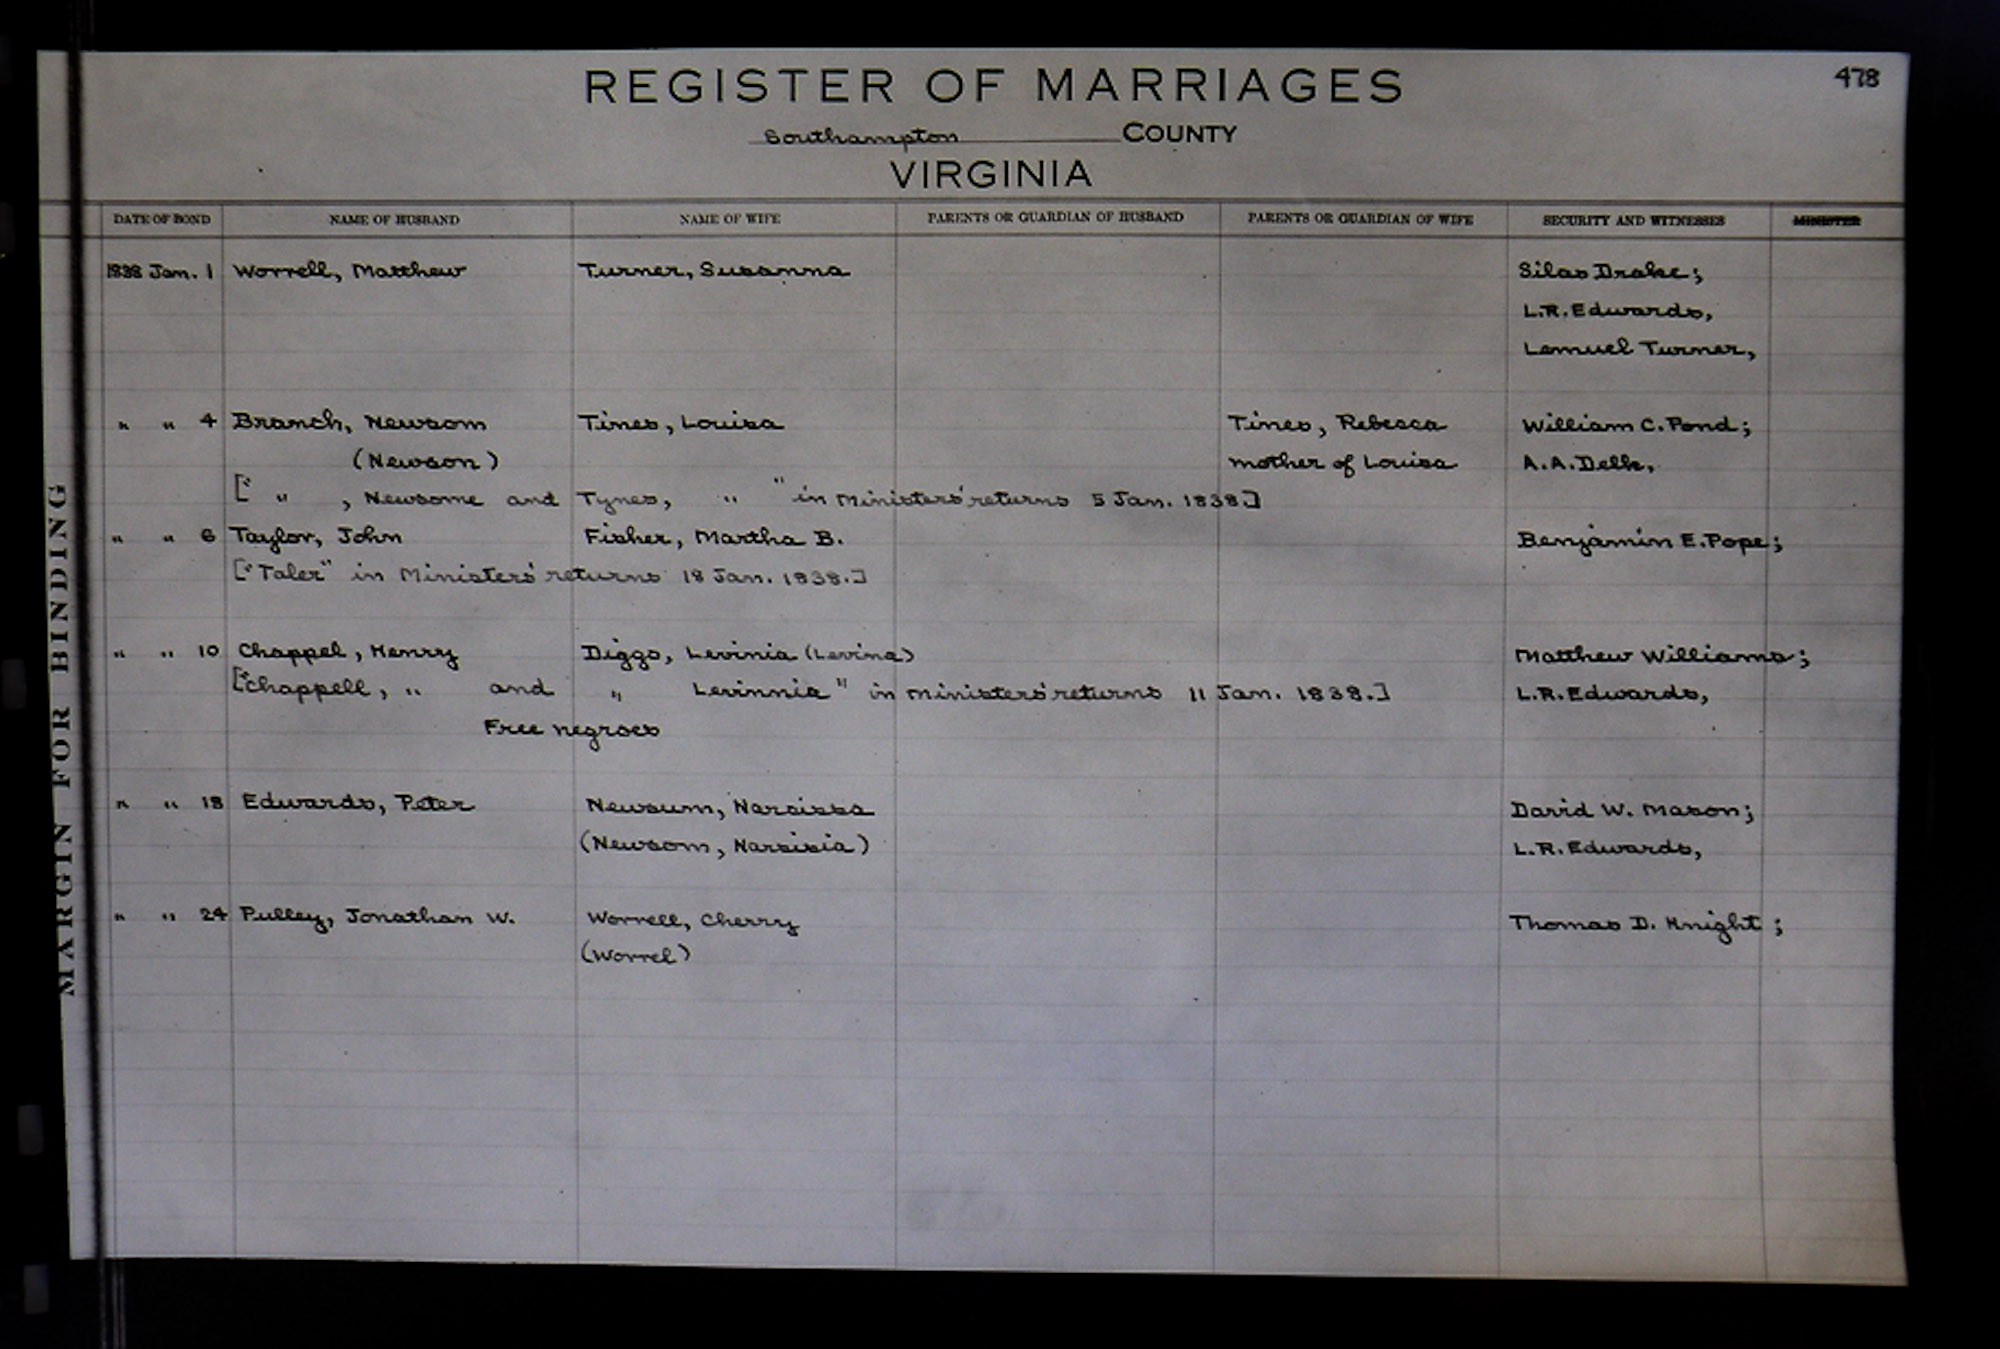 478
REGISTER OF MARRIAGES
Southampton COUNTY
VIRGINIA
DATE OF BOND NAME OF HUSBAND NAME OF WIFE PARENTS OR GUARDIAN OF HUSBAND PARENTS OR GUARDIAN OF WIFE SECURITY AND WITNESSES MINISTER
1838 Jan. 1 Worrell, Matthew Turner, Susanna Silas Drake;
L.R. Edwards,
Lemuel Turner,
" " 4 Branch, Newsom Tines, Louisa Tines, Rebecca William C. Pond;
(Newson) mother of Louisa A.A. Delk,
[" " , Newsome and Tynes, " " in Ministers' returns 5 Jan. 1838.]
" " 6 Taylor, John Fisher, Martha B. Benjamin E. Pope;
["Taler" in Ministers' returns 18 Jan. 1838.]
" " 10 Chappel, Henry Diggs, Levinia (Levina) Matthew Williams;
["Chappell, " and " Levinnia" in Ministers' returns 11 Jan. 1838.] L.R. Edwards,
Free negroes
" " 18 Edwards, Peter Newsum, Narcissa David W. Mason;
(Newsom, Narsisia) L.R. Edwards,
" " 24 Pulley, Jonathan W. Worrell, Cherry Thomas D. Knight;
(Worrel)
MARGIN FOR BINDING